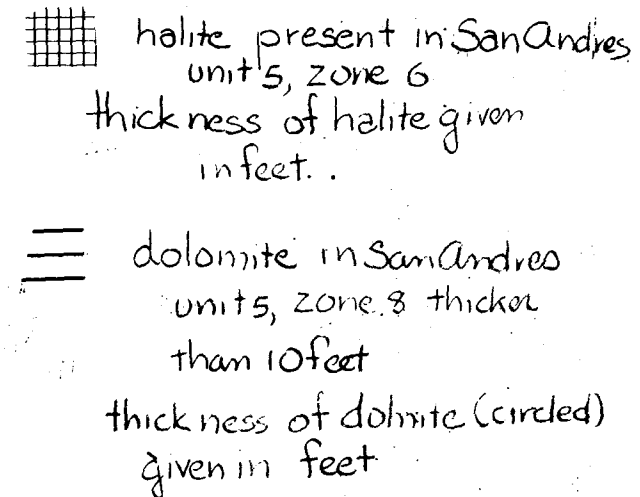 halite present in San Andres
unit 5, zone 6
thickness of halite given
in feet.
dolomite in San Andres
unit 5, zone 8 thicker
than 10 feet
thickness of dolmite (circled)
given in feet